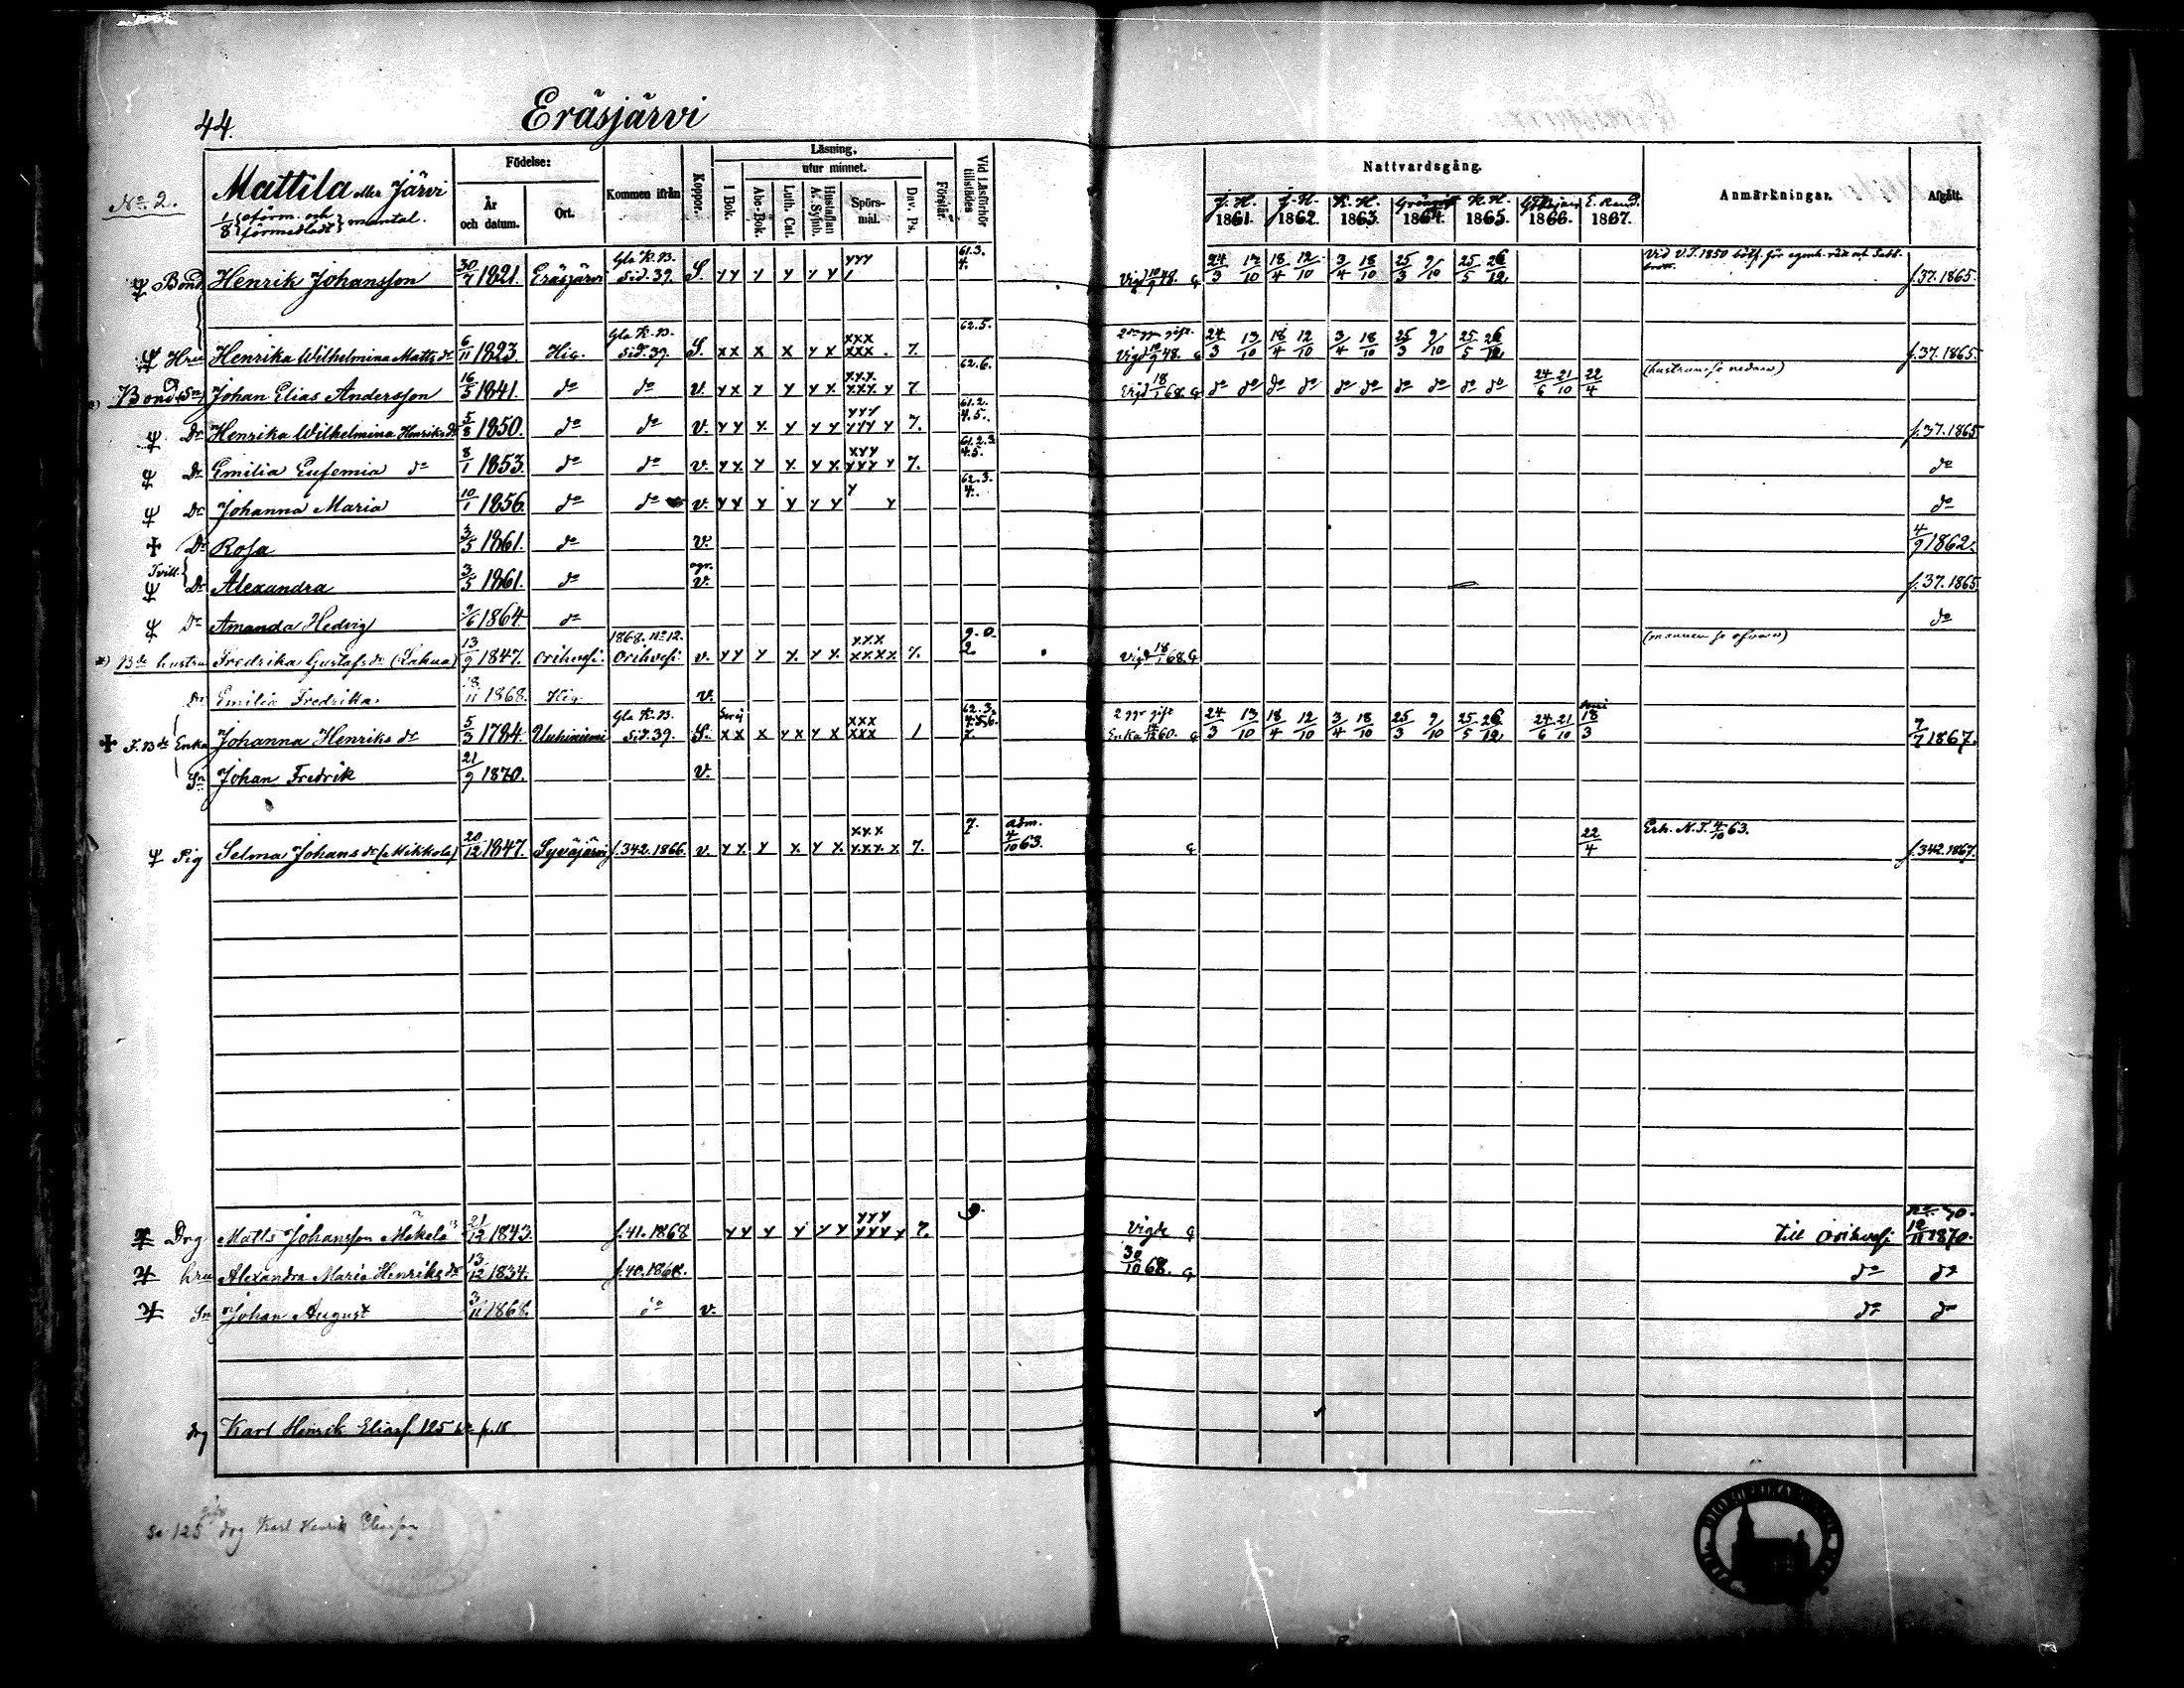 44.
Eräsjärvi
No 2.
Mattila eller Järvi
1/8 oförm. och förmedladt mantal.
Födelse:
År och datum.
Ort.
Kommen ifrån
Koppor.
Läsning.
utur minnet.
I Bok.
Abc-Bok.
Luth. Cat.
Hustaflan A. Symb.
Spörsmål.
Dav. Ps.
Förstår.
Vid Läsförhör tillstädes
Nattvardsgång.
1861. 1862. 1863. 1864. 1865. 1866. 1867.
Anmärkningar.
Afgått.
Bond Henrik Johansson 30/7 1821. Eräsjärvi Gla K.B. Sid. 39. S. Vigd 10/9 48. 24/3 13/10 18/4 12/10 3/4 18/10 25/3 9/10 25/5 26/12 Vid V.T. 1850 f. 37. 1865.
Hru Henrika Wilhelmina Matts dr 6/11 1823. Hic. Gla K.B. Sid. 39. S. 62.5. Vigd 10/9 48. 24/3 13/10 18/4 12/10 3/4 18/10 25/3 9/10 25/5 26/12 f. 37. 1865.
Bond Sn Johan Elias Andersson 16/5 1841. do do v. 7 62.6. Vigd 18/1 68. do do do do do do do do do do 24/6 21/10 22/4 (hustrun se nedan)
Dr Henrika Wilhelmina Henriks dr 5/8 1850. do do v. 7. 61.2. 4.5. f. 37. 1865
Dr Emilia Eufemia do 8/1 1853. do do v. 7. 61.2.3. 4.5. do
Dr Johanna Maria 10/1 1856. do do v. 62.3. 4. do
Dr Rosa 3/5 1861. do v. 4/9 1862.
Tvill. Dr Alexandra 3/5 1861. do v. f. 37. 1865
Dr Amanda Hedvig 9/6 1864. do do
Bde hustru Fredrika Gustafs dr (Lakua) 13/9 1847. Orihvesi. 1868. No 12. Orihvesi. v. 7. Vigd 18/1 68. (mannen se ofvan)
Dr Emilia Fredrika. 18/11 1868. Hic. v.
F. Bde Enka Johanna Henriks dr 5/3 1784. Uuhiniemi Gla K.B. Sid. 39. S. 62.3. 4.5.6. 7. 2 ggr gift Enka 60. 24/3 13/10 18/4 12/10 3/4 18/10 25/3 9/10 25/5 26/12 24/6 21/10 18/3 7/7 1867.
Sn Johan Fredrik 21/9 1870. v.
Pig Selma Johans dr (Mikkola) 20/12 1847. Syväjärvi f. 342. 1866. v. 7. 7. adm. 4/10 63. 22/4 Erh. N.T. 4/10 63. f. 342. 1867.
Drg Matts Johansson Mäkelä 21/12 1843. f. 41. 1868 7. 9. Vigde Till Orihvesi No 70. 12/11 1870.
hru Alexandra Maria Henriks dr 13/12 1834. f. 40. 1868. 30/10 68. do do
Sn Johan August 3/11 1868. do v. do do
drg Karl Henrik Eliass. 125
Se 125 drg Karl Henrik Eliasson